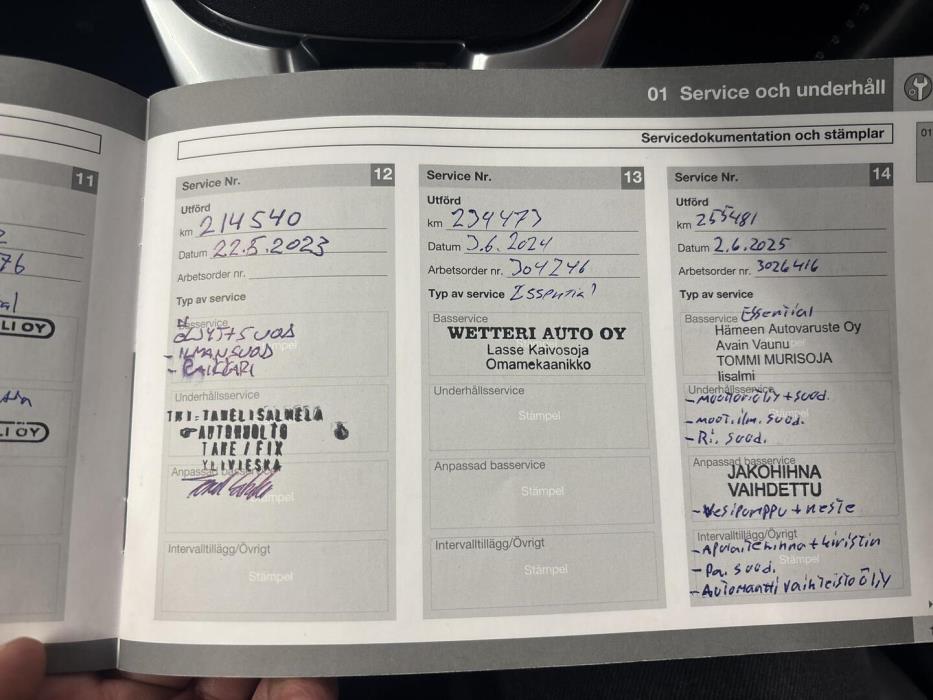 01 Service och underhåll
01
Servicedokumentation och stämplar
11
76
LI OY
LI OY
Service Nr. 12
Utförd
km 214540
Datum 22.5.2023
Arbetsorder nr.
Typ av service
Basservice
ÖLJYT+SUOD
-ILMANSUOD
-RAIKKARI
Underhållsservice
TMI: TANELI SALMELA
AUTOHUOLTO
TANE / FIX
YLIVIESKA
Anpassad basservice
Stämpel
Intervalltillägg/Övrigt
Stämpel
Service Nr. 13
Utförd
km 234473
Datum 3.6.2024
Arbetsorder nr. 304246
Typ av service Essential
Basservice
WETTERI AUTO OY
Lasse Kaivosoja
Omamekaanikko
Underhållsservice
Stämpel
Anpassad basservice
Stämpel
Intervalltillägg/Övrigt
Stämpel
Service Nr. 14
Utförd
km 255481
Datum 2.6.2025
Arbetsorder nr. 3026416
Typ av service
Basservice Essential
Hämeen Autovaruste Oy
Avain Vaunu
TOMMI MURISOJA
Iisalmi
Underhållsservice
-moottoriöljy+suod.
-moot.ilm.suod.
-Ri. suod.
Anpassad basservice
JAKOHIHNA
VAIHDETTU
-Vesipumppu + neste
Intervalltillägg/Övrigt
-Apulaitehihna+kiristin
-Pa. suod.
-Automaatti vaihteistoöljy